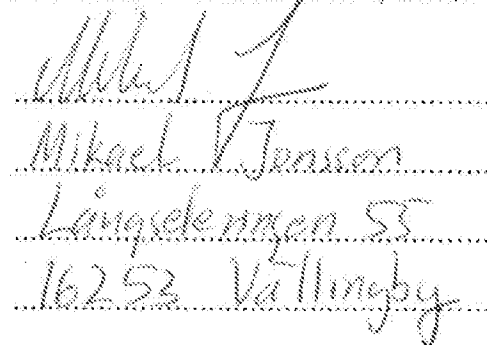 Mikael Jonsson
Långseleringen 55
16253 Vällingby